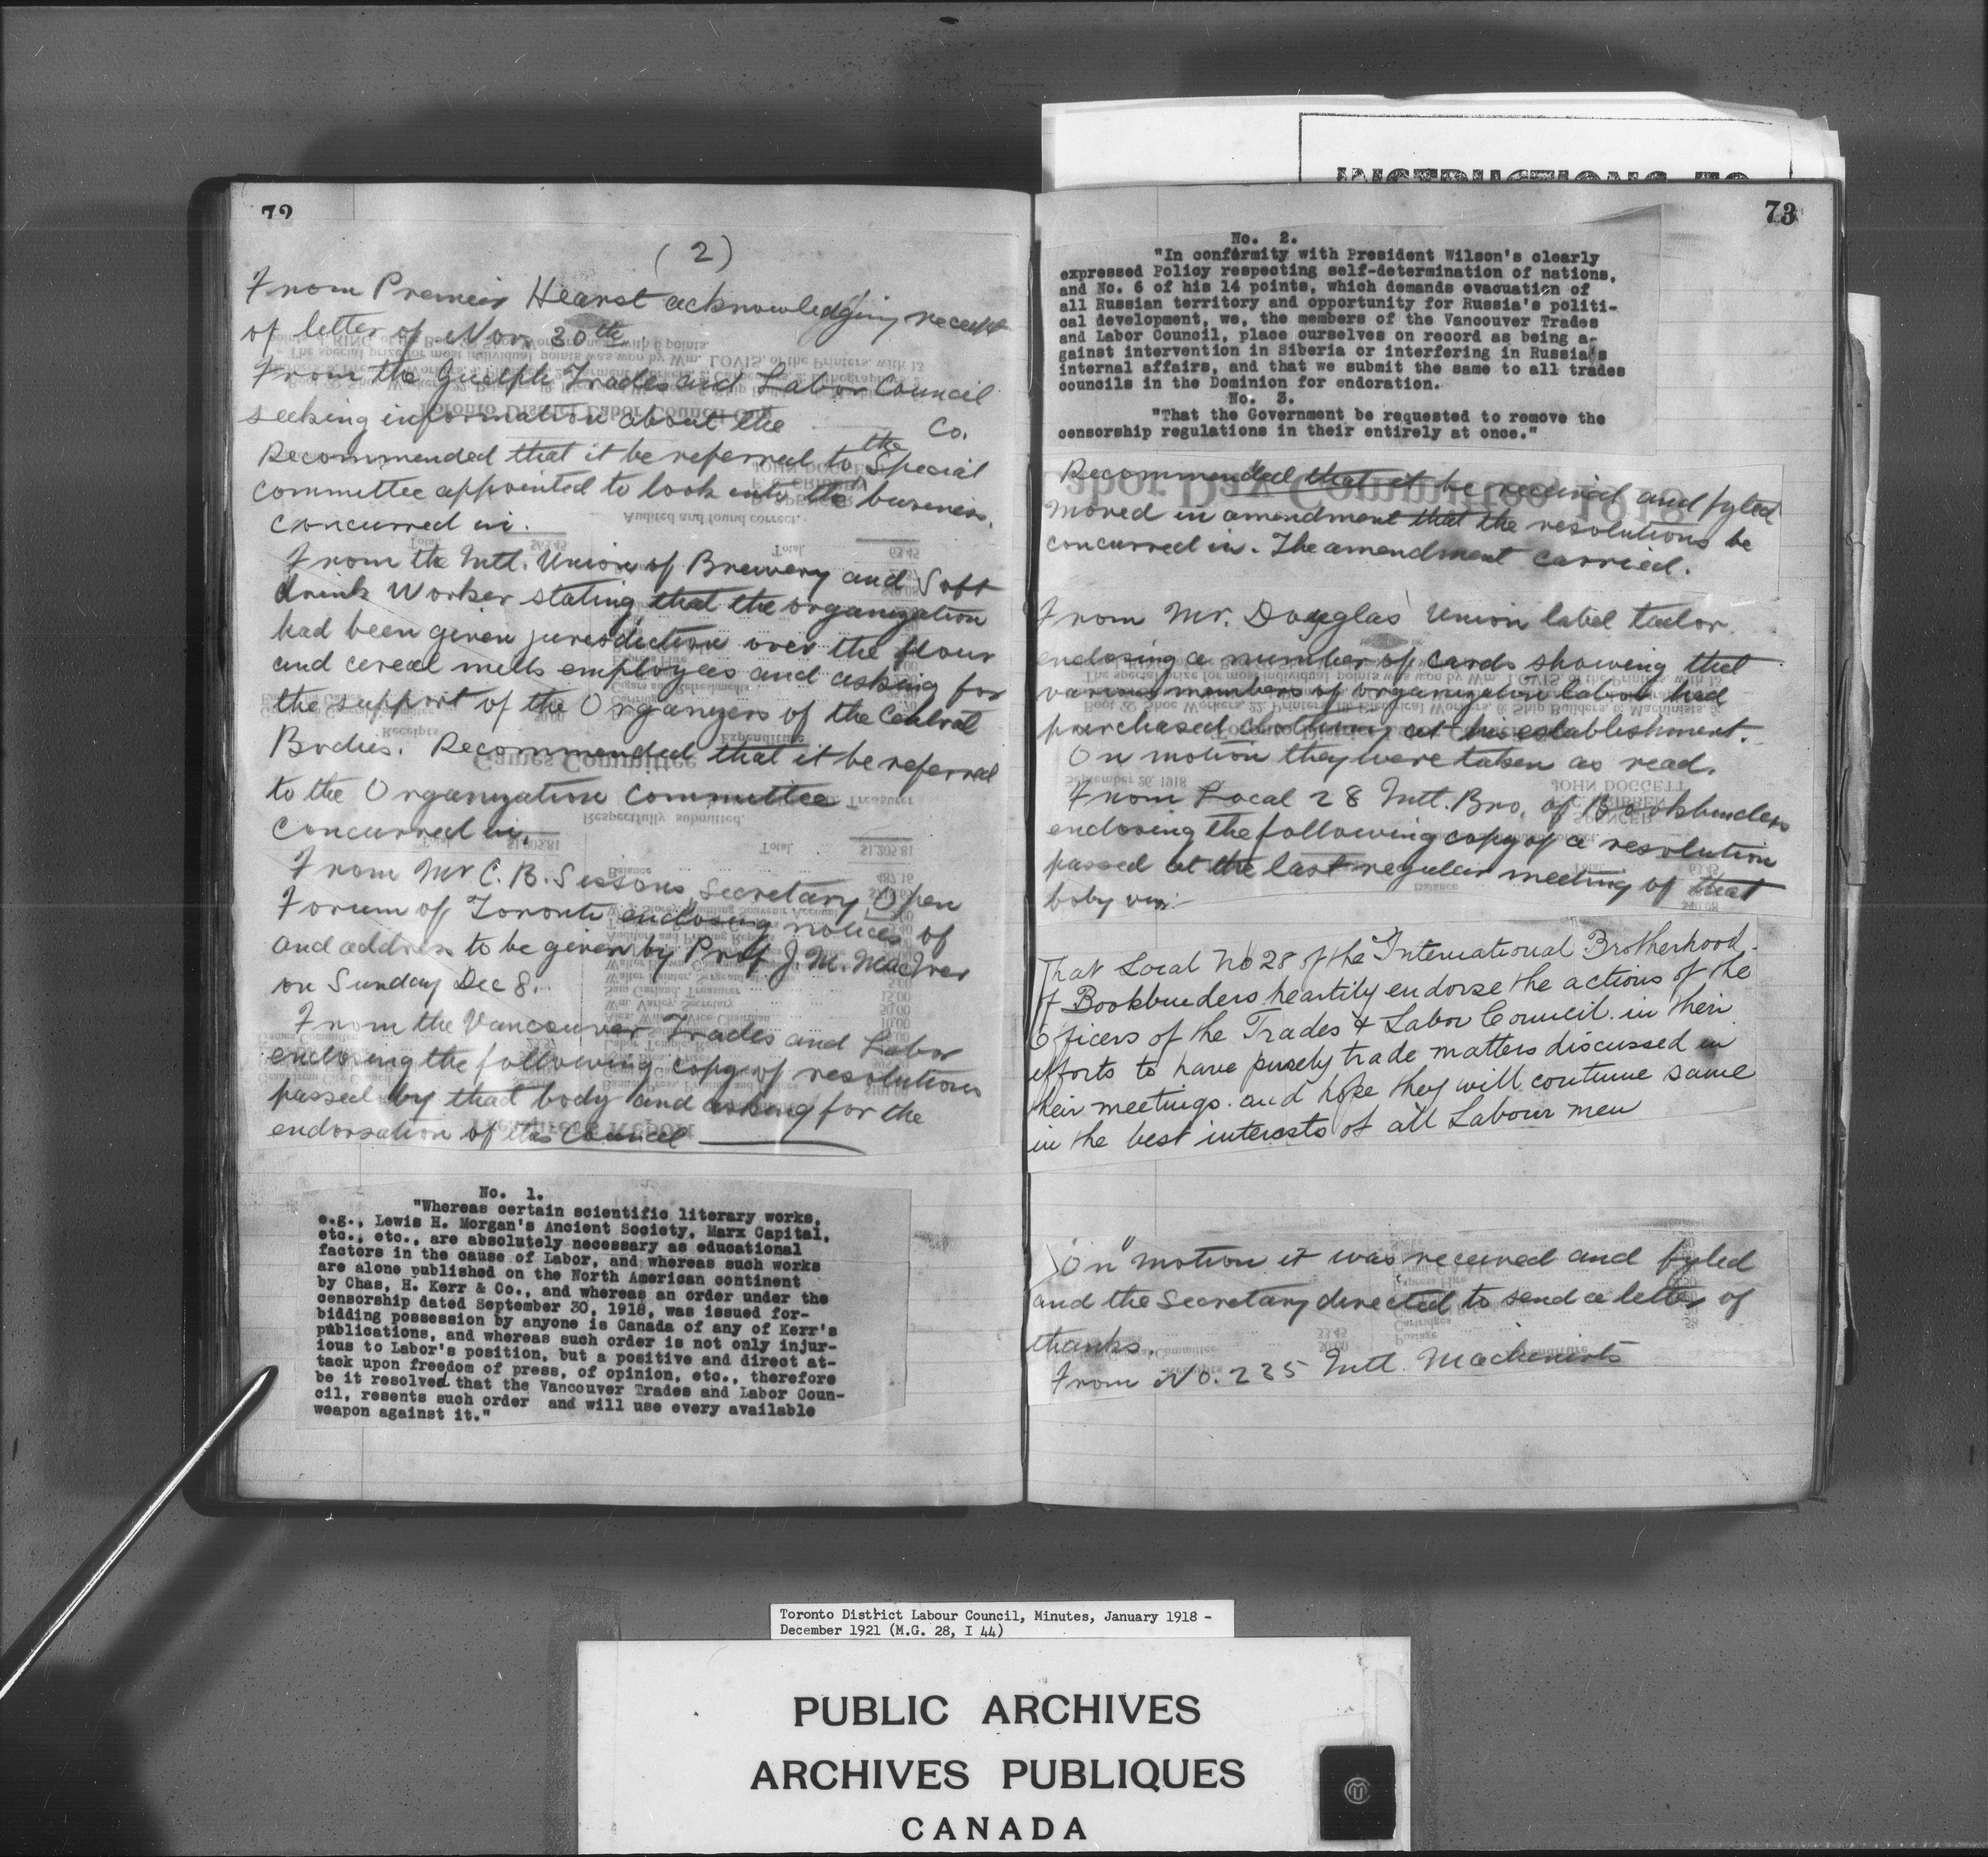 72
(2)
From Premier Hearst acknowledging receipt
of letter of Nov. 30th
From the Guelph Trades and Labor Council
seeking information about the Co.
Recommended that it be referred to the Special
Committee appointed to look into the business.
Concurred in.
From the Intl. Union of Brewery and Soft
drink Worker stating that the organization
had been given jurisdiction over the flour
and cereal mills employees and asking for
the support of the Organizers of the Central
Bodies. Recommended that it be referred
to the Organization Committee
Concurred in.
From Mr C. B. Sissons, Secretary Open
Forum of Toronto enclosing notices of
and address to be given by Prof J. M. MacIver
on Sunday Dec 8.
From the Vancouver Trades and Labor
enclosing the following copy of resolutions
passed by that body and asking for the
endorsation of this Council
No. 1.
"Whereas certain scientific literary works,
e.g., Lewis H. Morgan's Ancient Society, Marx Capital,
etc., etc., are absolutely necessary as educational
factors in the cause of Labor, and whereas such works
are alone published on the North American continent
by Chas, H. Kerr & Co., and whereas an order under the
censorship dated September 30, 1918, was issued for-
bidding possession by anyone is Canada of any of Kerr's
publications, and whereas such order is not only injur-
ious to Labor's position, but a positive and direct at-
tack upon freedom of press, of opinion, etc., therefore
be it resolved that the Vancouver Trades and Labor Coun-
cil, resents such order and will use every available
weapon against it."
INSTRUCTIONS TO
73
No. 2.
"In conformity with President Wilson's clearly
expressed Policy respecting self-determination of nations,
and No. 6 of his 14 points, which demands evacuation of
all Russian territory and opportunity for Russia's politi-
cal development, we, the members of the Vancouver Trades
and Labor Council, place ourselves on record as being a-
gainst intervention in Siberia or interfering in Russia's
internal affairs, and that we submit the same to all trades
councils in the Dominion for endoration.
No. 3.
"That the Government be requested to remove the
censorship regulations in their entirely at once."
Recommended that it be received and fyled
Moved in amendment that the resolutions be
concurred in. The amendment carried.
From Mr. Douglas Union label tailor
enclosing a number of cards showing that
various members of organization labor had
purchased clothing at his establishment.
On motion they were taken as read.
From Local 28 Intl. Bro. of Bookbinders
enclosing the following copy of a resolution
passed at the last regular meeting of that
boby viz:-
That Local No 28 of the International Brotherhood
of Bookbinders heartily endorse the actions of the
Officers of the Trades & Labor Council in their
efforts to have purely trade matters discussed in
their meetings. and hope they will continue same
in the best interests of all Labour men
"On" motion it was received and fyled
and the Secretary directed to send a letter of
thanks.
From No. 235 Intl. Machinists
Toronto District Labour Council, Minutes, January 1918 -
December 1921 (M.G. 28, I 44)
PUBLIC ARCHIVES
ARCHIVES PUBLIQUES
CANADA